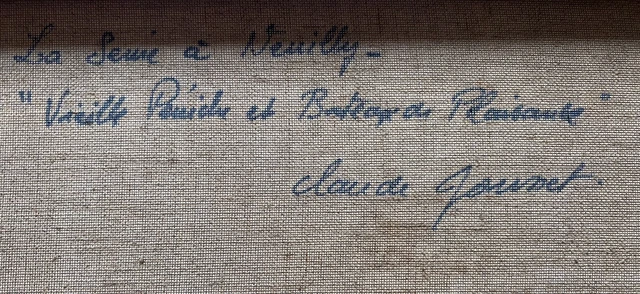 La Seine à Neuilly -
"Vieille Péniche et Bateaux de Plaisance"
Claude